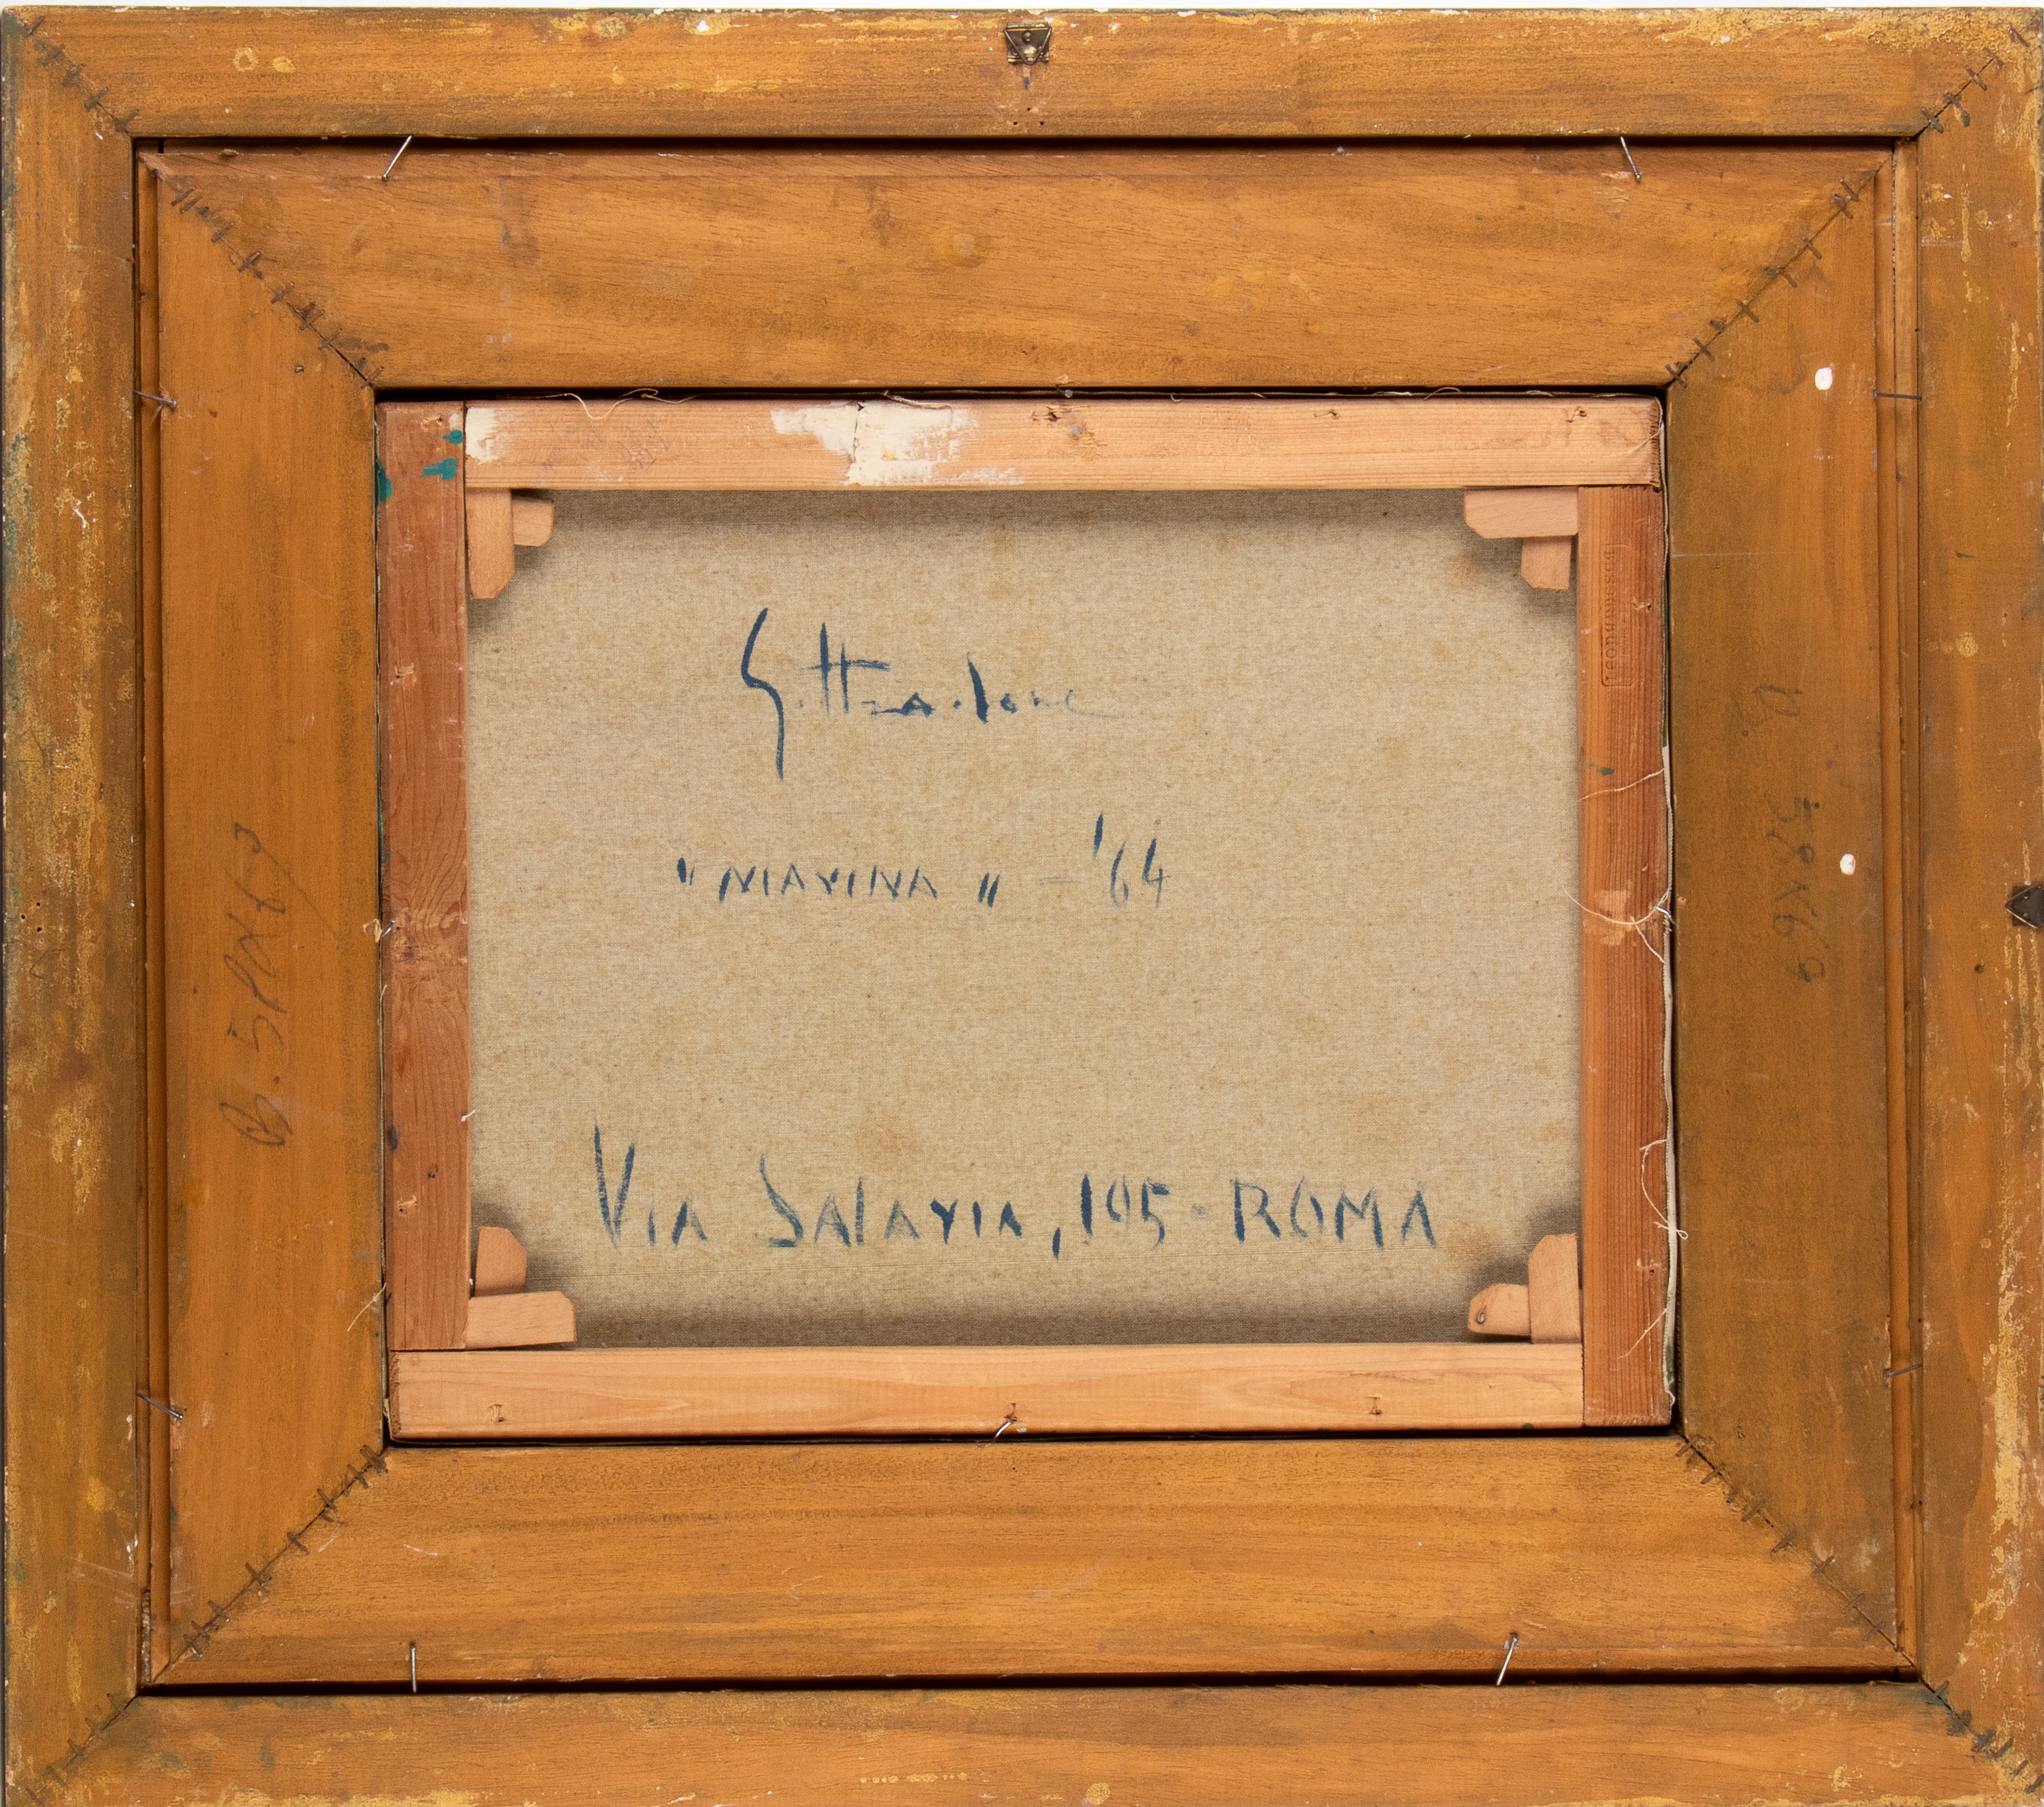 G. Stradone
"MARINA" - '64
VIA SALARIA, 195 - ROMA
58x69